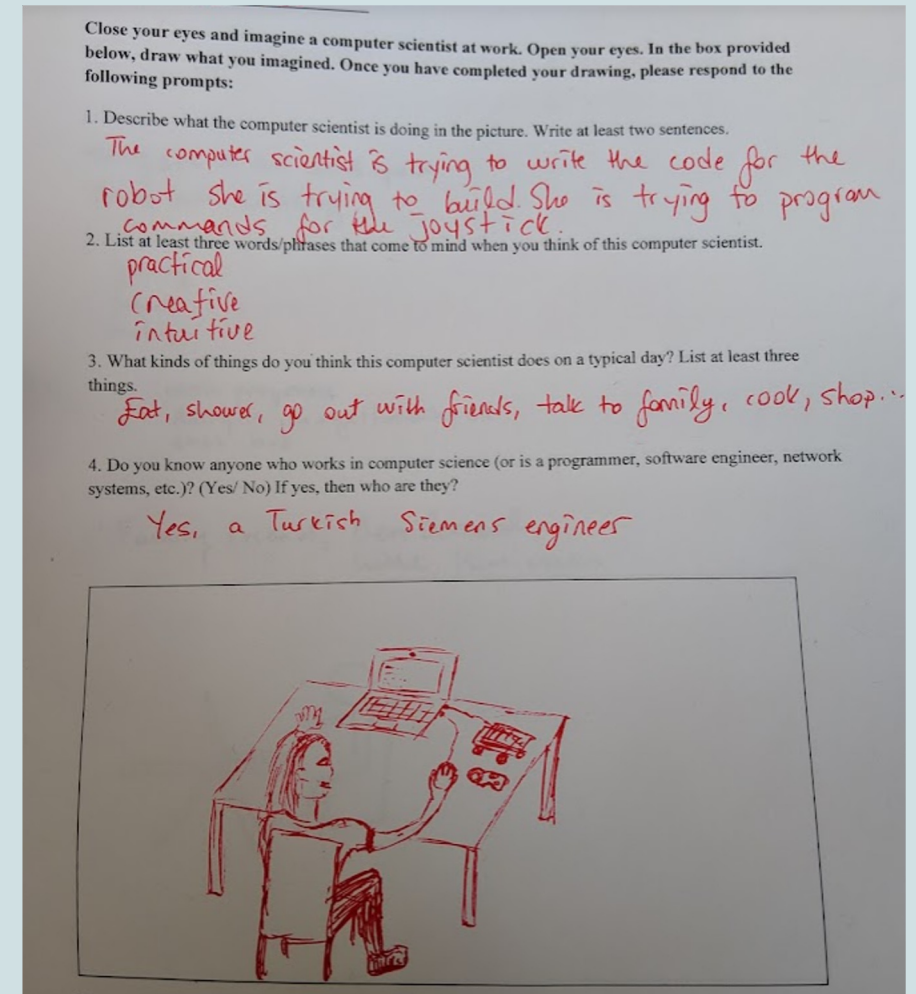 Close your eyes and imagine a computer scientist at work. Open your eyes. In the box provided
below, draw what you imagined. Once you have completed your drawing, please respond to the
following prompts:
1. Describe what the computer scientist is doing in the picture. Write at least two sentences.
The computer scientist is trying to write the code for the
robot she is trying to build. She is trying to program
commands for the joystick.
2. List at least three words/phrases that come to mind when you think of this computer scientist.
practical
creative
intuitive
3. What kinds of things do you think this computer scientist does on a typical day? List at least three
things.
Eat, shower, go out with friends, talk to family, cook, shop...
4. Do you know anyone who works in computer science (or is a programmer, software engineer, network
systems, etc.)? (Yes/ No) If yes, then who are they?
Yes, a Turkish Siemens engineer